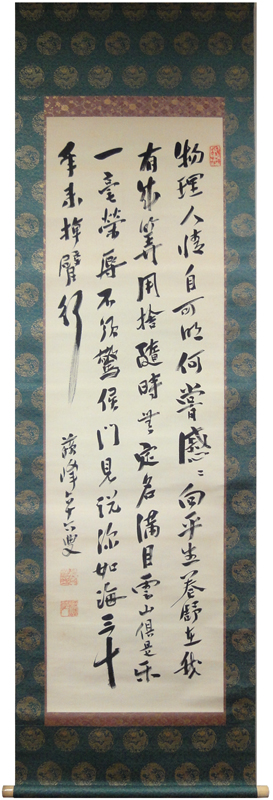 物理人情自可明何嘗慼〻向平生卷舒在我
有成算用捨隨時無定名滿目雲山俱是樂
一毫榮辱不須驚侯門見說深如海三十
年來掉臂行
蘇峰 叟